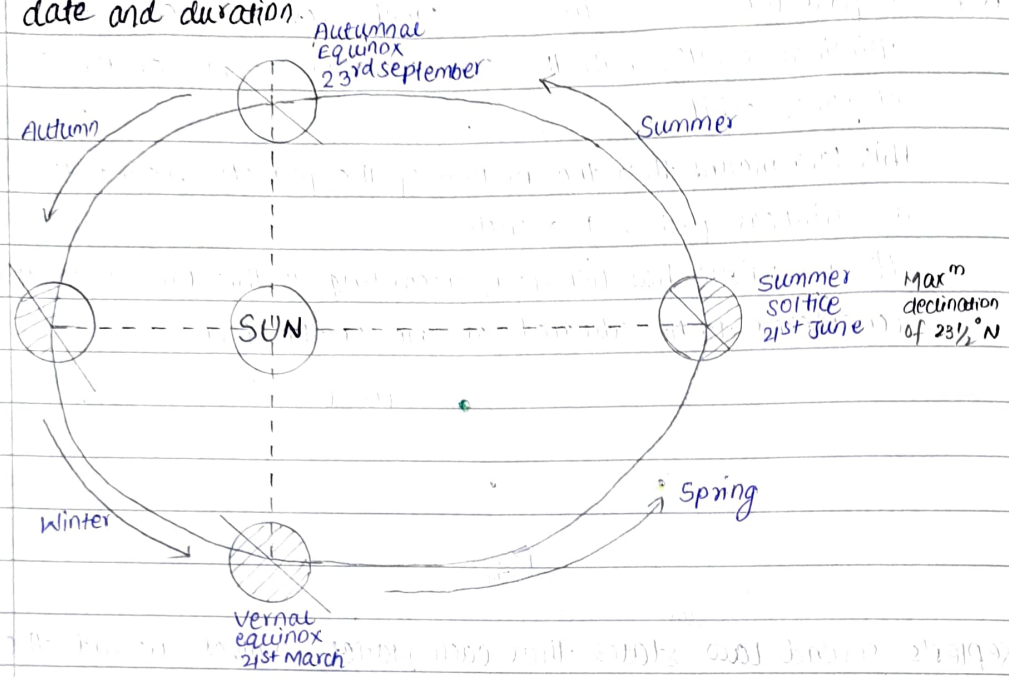 date and duration.
Autumnal
Equinox
23rd september
Autumn
Summer
SUN
Summer
Soltice
21st June
Maxᵐ
declination
of 23½°N
Spring
Winter
Vernal
equinox
21st March